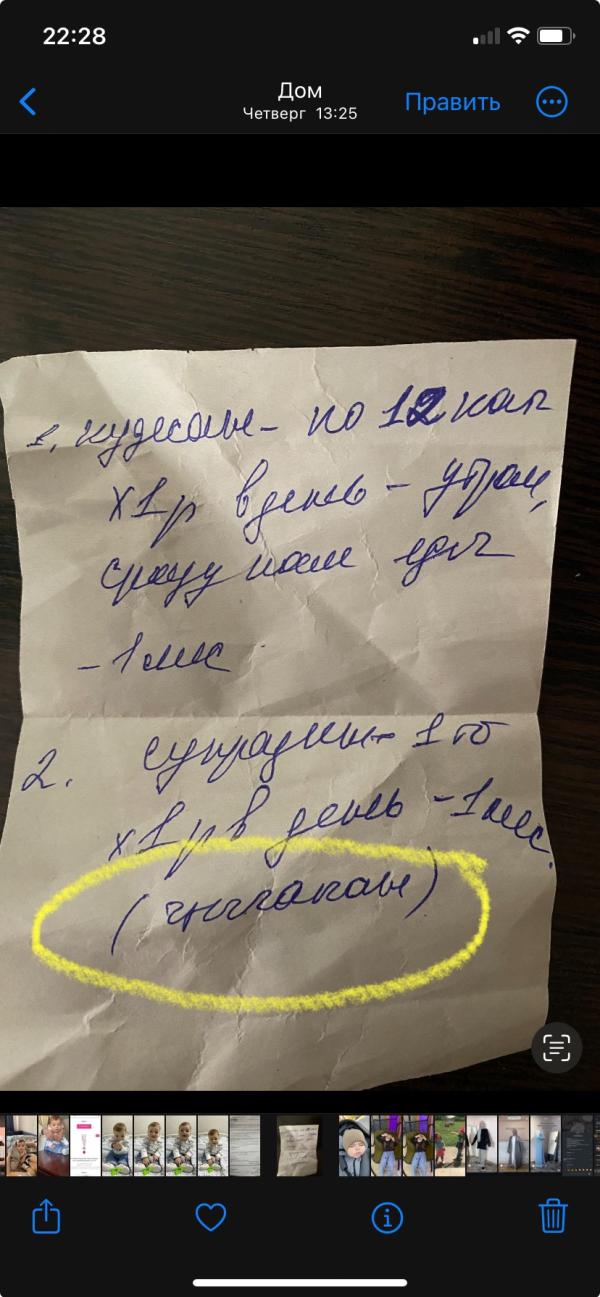 22:28
Дом
Четверг 13:25
Править
1. кудесан - по 12 кап
х1р в день - утром,
сразу после еды
- 1 мес
2. супрадин - 1 тб
х1р в день - 1 мес.